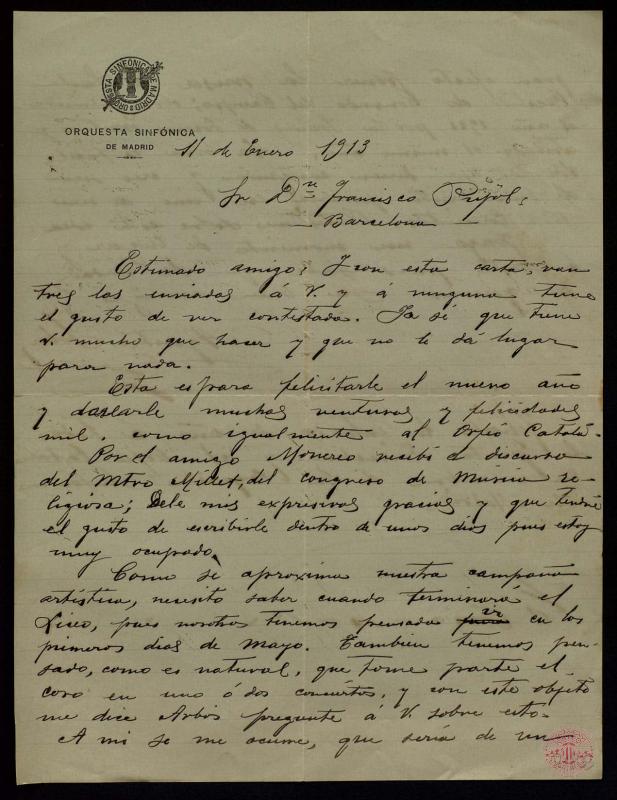 ORQUESTA SINFÓNICA DE MADRID
ORQUESTA SINFÓNICA
DE MADRID
11 de Enero 1913
Sr Dn Francisco Pujol:
Barcelona
Estimado amigo: Y con esta carta, van
tres las enviadas á V. y á ninguna tuve
el gusto de ver contestada. Ya sé que tiene
V. mucho que hacer y que no le dá lugar
para nada.
Esta es para felicitarle el nuevo año
y desearle muchas venturas y felicidades
mil, como igualmente al Orfeó Català.
Por el amigo Monereo recibí el discurso
del Mtro Millet, del congreso de Música re-
ligiosa; Dele mis expresivas gracias y que tendré
el gusto de escribirle dentro de unos dias pues estoy
muy ocupado.
Como se aproxima nuestra campaña
artística, necesito saber cuando terminara el
Liceo, pues nosotros tenemos pensado ir en los
primeros dias de Mayo. Tambien tenemos pen-
sado, como es natural, que tome parte el
coro en uno ó dos conciertos, y con este objeto
me dice Arbos pregunte á V. sobre esto.
A mi se me ocurre, que seria de un